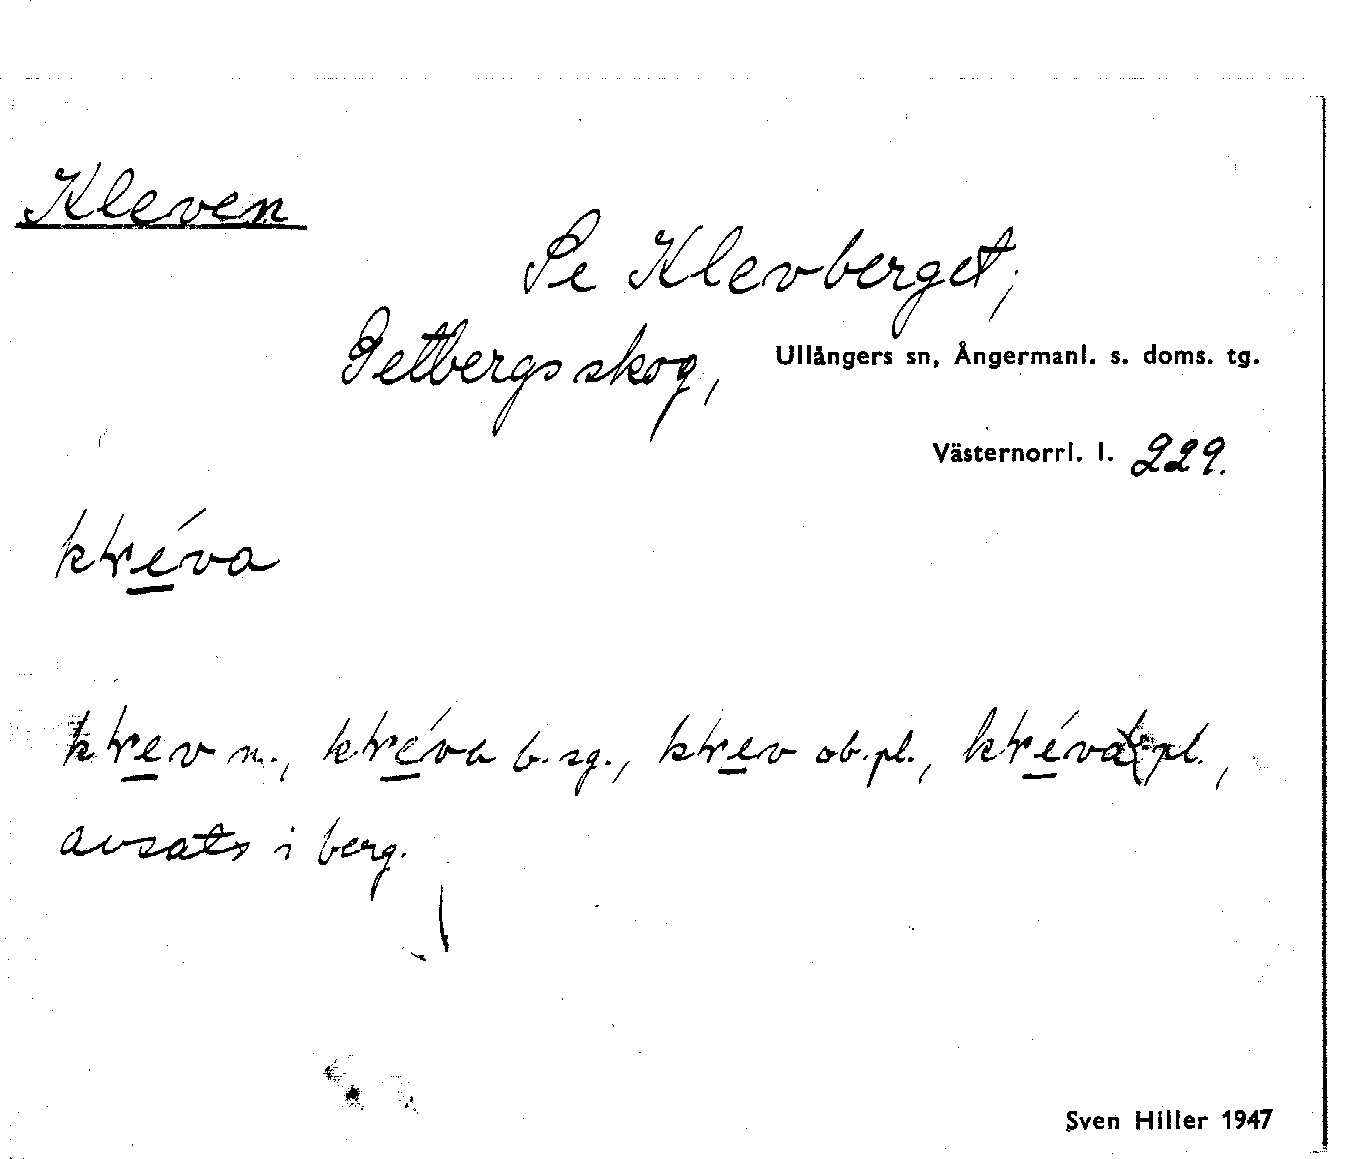 Kleven
Se Klevberget,
Getbergsskog, Ullångers sn, Ångermanl. s. doms. tg.
Västernorrl. l. 229.
ktréva
ktrev n., ktréva b. sg., ktrev ob. pl., ktréva b. pl.,
avsats i berg.
Sven Hiller 1947